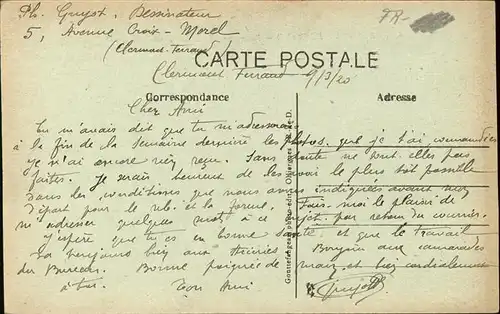 Ph. Guyot, Dessinateur
5, Avenue Croix-Morel
(Clermont-Ferrand)
FR-
CARTE POSTALE
Clermont Ferrand 9/3/20
Correspondance
Adresse
Cher Ami
Tu m'avais dit que tu m'adresserais
à la fin de la semaine dernière les photos que je t'ai commandées
je n'ai encore rien reçu. Sans doute ne sont elles pas
faites. Je serais heureux de les avoir le plus tôt possible
dans les conditions que nous avons indiquées avant mon
départ pour le et la forme. Fais-moi le plaisir de
m'adresser quelques mots à ce sujet par retour du courrier.
J'espère que tu es en bonne santé et que le travail
va toujours bien aux Bonjour aux camarades
du Bureau. Bonne poignée de main et bien cordialement
à toi. Ton Ami
Guyot
Gouttefangeas photo-édit. Olliergues P.-de-D.